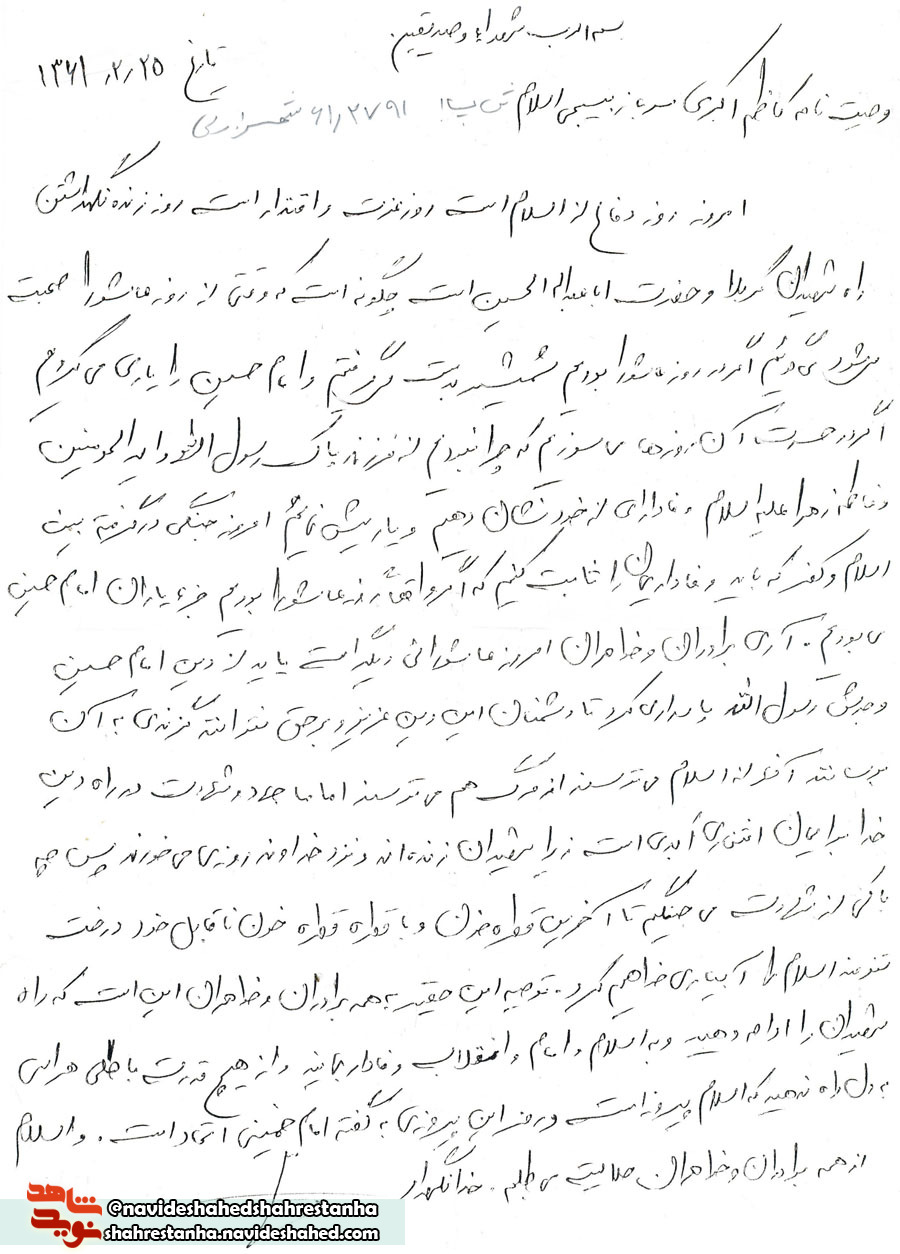 بسم الرب شهداء و صدیقین
تاریخ ۱۳۶۱٫۲٫۲۵
وصیت نامه کاظم اکبری سرباز بسیجی اسلام ۶۱٫۲۷۹۱
امروز روز دفاع از اسلام است روز عزت و اقتدار است روز زنده نگهداشتن
راه شهیدان کربلا و حضرت اباعبداله الحسین است چگونه است که وقتی از روز عاشورا صحبت
می شود می گوئیم اگر در روز عاشورا بودیم شمشیر بدست می گرفتیم و امام حسین را یاری می کردیم
اگر در حسرت آن روزها می سوزیم که چرا نبودیم از فرزند پاک رسول الله و امیرالمومنین
و فاطمه زهرا علیه اسلام وفاداری از خود نشان دهیم و یاریش نمائیم امروز جنگی در گرفته بین
اسلام و کفر که باید وفاداریمان را ثابت کنیم که اگر واقعاً در روز عاشورا بودیم جزء یاران امام حسین
می بودیم. آری برادران و خواهران امروز عاشورائی دیگر است باید از دین امام حسین
و جدش رسول الله پاسداری کرد تا دشمنان این دین عزیز و بر حق نتوانند گزندی به آن
برسانند آنها از اسلام می ترسند از مرگ هم می ترسند اما ما جهاد و شهادت در راه دین
خدا برایمان افتخاری ابدی است زیرا شهیدان زنده اند و نزد خداوند روزی می خورند پس چه
باکی از شهادت می جنگیم تا آخرین قطره خون و با قطره قطره خون ناقابل خود درخت
تنومند اسلام را آبیاری خواهیم کرد. توصیه این حقیر به همه برادران و خواهران این است که راه
شهیدان را ادامه دهید و به اسلام و امام و انقلاب وفادار بمانید و از هیچ قدرت باطلی هراسی
به دل راه ندهید که اسلام پیروز است و رمز این پیروزی به گفته امام خمینی اتحاد است. والسلام
از همه برادران و خواهران حلالیت می طلبم. خدانگهدار
نوید شاهد
@navideshahedshahrestanha
shahrestanha.navideshahed.com